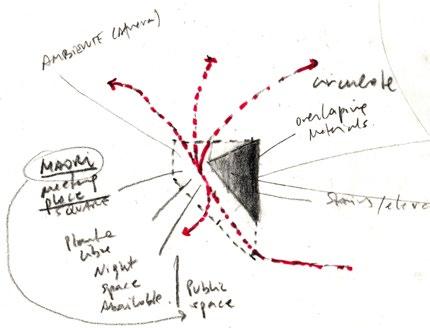 AMBIENTE (afuera)
circulate
overlaping
Materials.
MAORI
meeting
PLACE
SQUARE
Stairs/eleva
Planta
Libre
Night
space
Available.
Public
space